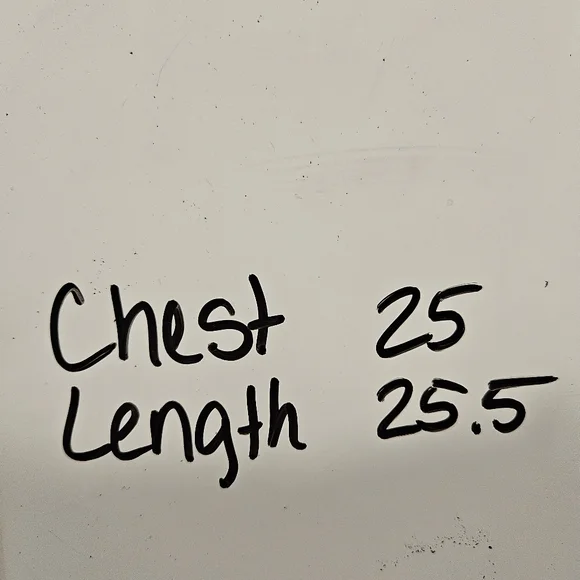 Chest 25
Length 25.5